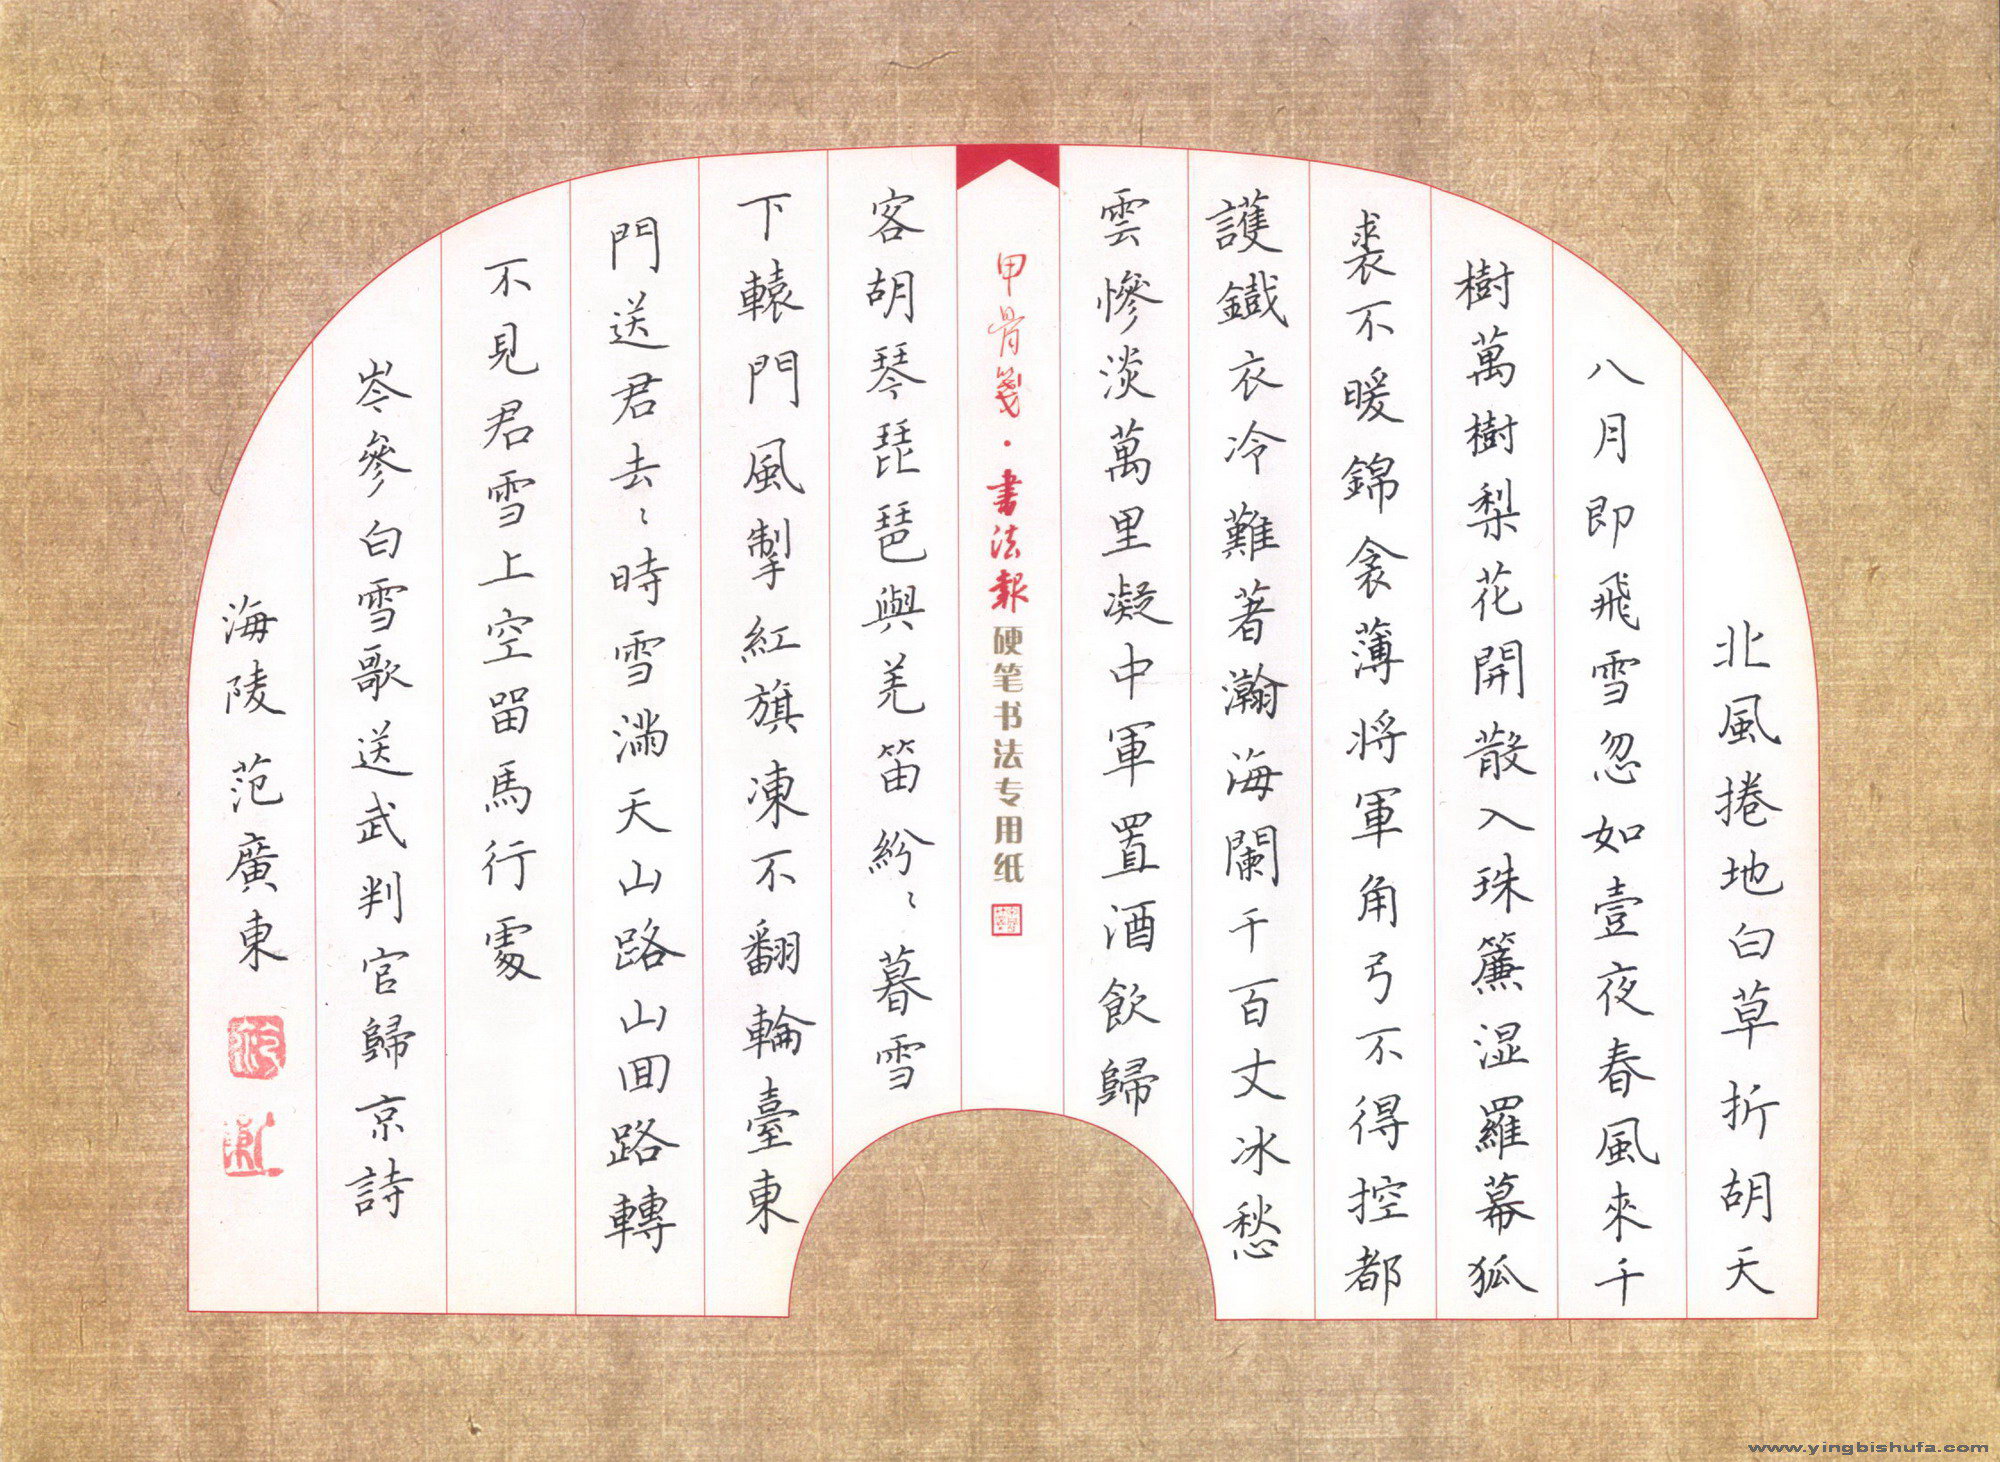 北風捲地白草折胡天
八月即飛雪忽如壹夜春風來千
樹萬樹梨花開散入珠簾湿羅幕狐
裘不暖錦衾薄將軍角弓不得控都
護鐵衣冷難著瀚海闌干百丈冰愁
雲慘淡萬里凝中軍置酒飲歸
甲骨笺·書法報硬笔书法专用纸
客胡琴琵琶與羌笛紛〻暮雪
下轅門風掣紅旗凍不翻輪臺東
門送君去〻時雪滿天山路山回路轉
不見君雪上空留馬行處
岑參白雪歌送武判官歸京詩
海陵范廣東
www.yingbishufa.com